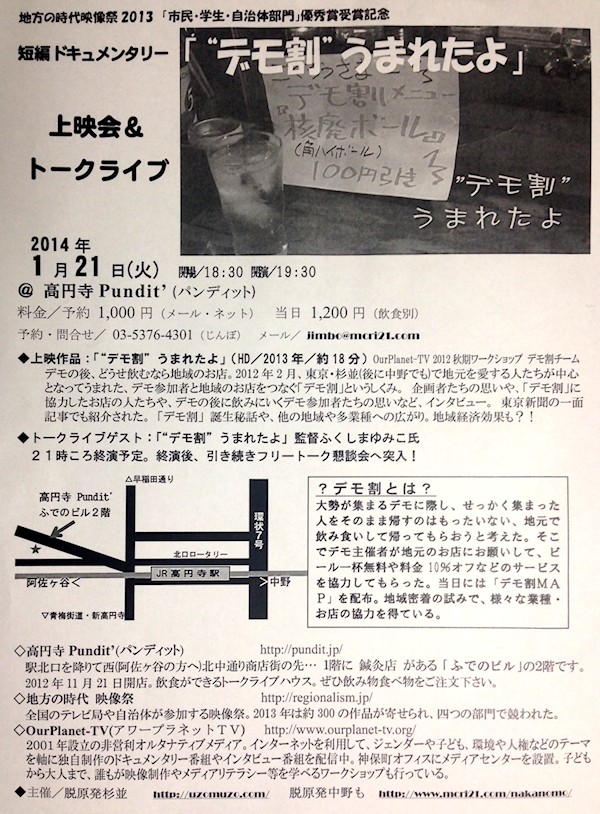 地方の時代映像祭2013 「市民・学生・自治体部門」優秀賞受賞記念
短編ドキュメンタリー 「“デモ割”うまれたよ」
上映会&
トークライブ
デモ割メニュー
『核廃ボール』
(角ハイボール)
100円引き
”デモ割”
うまれたよ
2014年
1月21日(火) 開場/18:30 開演/19:30
@ 高円寺 Pundit' (パンディット)
料金/予約 1,000円(メール・ネット) 当日 1,200円(飲食別)
予約・問合せ/ 03-5376-4301(じんぼ) メール/ jimbo@mcri21.com
◆上映作品:「“デモ割” うまれたよ」(HD/2013年/約18分) OurPlanet-TV 2012 秋期ワークショップ デモ割チーム
デモの後、どうせ飲むなら地域のお店。2012年2月、東京・杉並(後に中野でも)で地元を愛する人たちが中心
となってうまれた、デモ参加者と地域のお店をつなぐ「デモ割」というしくみ。 企画者たちの思いや、「デモ割」に
協力したお店の人たちや、デモの後に飲みにいくデモ参加者たちの思いなど、インタビュー。 東京新聞の一面
記事でも紹介された。「デモ割」 誕生秘話や、他の地域や多業種への広がり。地域経済効果も?!
◆トークライブゲスト:「“デモ割” うまれたよ」監督ふくしまゆみこ氏
21時ころ終演予定。終演後、引き続きフリートーク懇談会へ突入!
△早稲田通り
高円寺 Pundit'
ふでのビル2階
環状7号
北口ロータリー
JR高円寺駅
阿佐ヶ谷<
>中野
▽青梅街道・新高円寺
?デモ割とは?
大勢が集まるデモに際し、せっかく集まった
人をそのまま帰すのはもったいない、地元で
飲み食いして帰ってもらおうと考えた。そこ
でデモ主催者が地元のお店にお願いして、ビ
ール一杯無料や料金10%オフなどのサービス
を協力してもらった。当日には「デモ割MA
P」を配布。地域密着の試みで、様々な業種・
お店の協力を得ている。
◇高円寺 Pundit'(パンディット) http://pundit.jp/
駅北口を降りて西(阿佐ヶ谷の方へ)北中通り商店街の先… 1階に 鍼灸店 がある「ふでのビル」の2階です。
2012年11月21日開店。飲食ができるトークライブハウス。ぜひ飲み物食べ物をご注文下さい。
◇地方の時代 映像祭 http://regionalism.jp/
全国のテレビ局や自治体が参加する映像祭。2013年は約300の作品が寄せられ、四つの部門で競われた。
◇OurPlanet-TV(アワープラネットTV) http://www.ourplanet-tv.org/
2001年設立の非営利オルタナティブメディア。インターネットを利用して、ジェンダーや子ども、環境や人権などのテーマ
を軸に独自制作のドキュメンタリー番組やインタビュー番組を配信中。神保町オフィスにメディアセンターを設置。子ども
から大人まで、誰もが映像制作やメディアリテラシー等を学べるワークショップも行っている。
◆主催/脱原発杉並 http://uzomuzo.com/ 脱原発中野も http://www.mcri21.com/nakanomo/